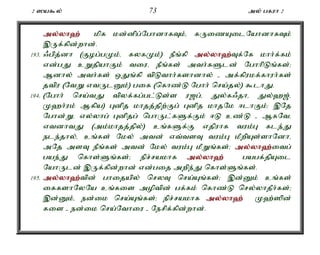 2 ஸயகூல் 73 அல் பகரா 2
அல்லாஹ் மிக மன்னிப்போனாகவும், கருணையுடையோனாகவும்
இருக்கின்றான்.
193. ஃபித்னா (குழப்பமும், கலகமும்) நீங்கி அல்லாஹ்வுக்கே மார்க்கம்
என்பது உறுதியாகும் வரை, நீங்கள் அவர்களுடன் போரிடுங்கள்;
ஆனால் அவர்கள் ஒதுங்கி விடுவார்களானால் - அக்கிரமக்காரர்கள்
தவிர (வேறு எவருடனும்) பகை (கொண்டு போர் செய்தல்) கூடாது.
194. (போர் செய்வது விலக்கப்பட்டுள்ள ரஜப், துல்கஃதா, துல்ஹஜ்,
முஹர்ரம் ஆகிய) புனித மாதத்திற்குப் புனித மாதமே ஈடாகும்; இதே
போன்று எல்லாப் புனிதப் பொருட்களுக்கும் ஈடு உண்டு - ஆகவே,
எவனாவது (அம்மாதத்தில்) உங்களுக்கு எதிராக வரம்பு கடந்து
நடந்தால், உங்கள் மேல் அவன் எவ்வளவு வரம்பு மீறியுள்ளானோ,
அதே அளவு நீங்கள் அவன் மேல் வரம்பு மீறுங்கள்; அல்லாஹ்வைப்
பயந்து கொள்ளுங்கள்; நிச்சயமாக அல்லாஹ் பயபக்தியுடை
யோருடன் இருக்கின்றான் என்பதை அறிந்து கொள்ளுங்கள்.
195. அல்லாஹ்வின் பாதையில் செலவு செய்யுங்கள்; இன்னும் உங்கள்
கைகளாலேயே உங்களை அழிவின் பக்கம் கொண்டு செல்லாதீர்கள்;
இன்னும், நன்மை செய்யுங்கள்; நிச்சயமாக அல்லாஹ் முஹ்ஸின்
களை - நன்மை செய்வோரை - நேசிக்கின்றான்.